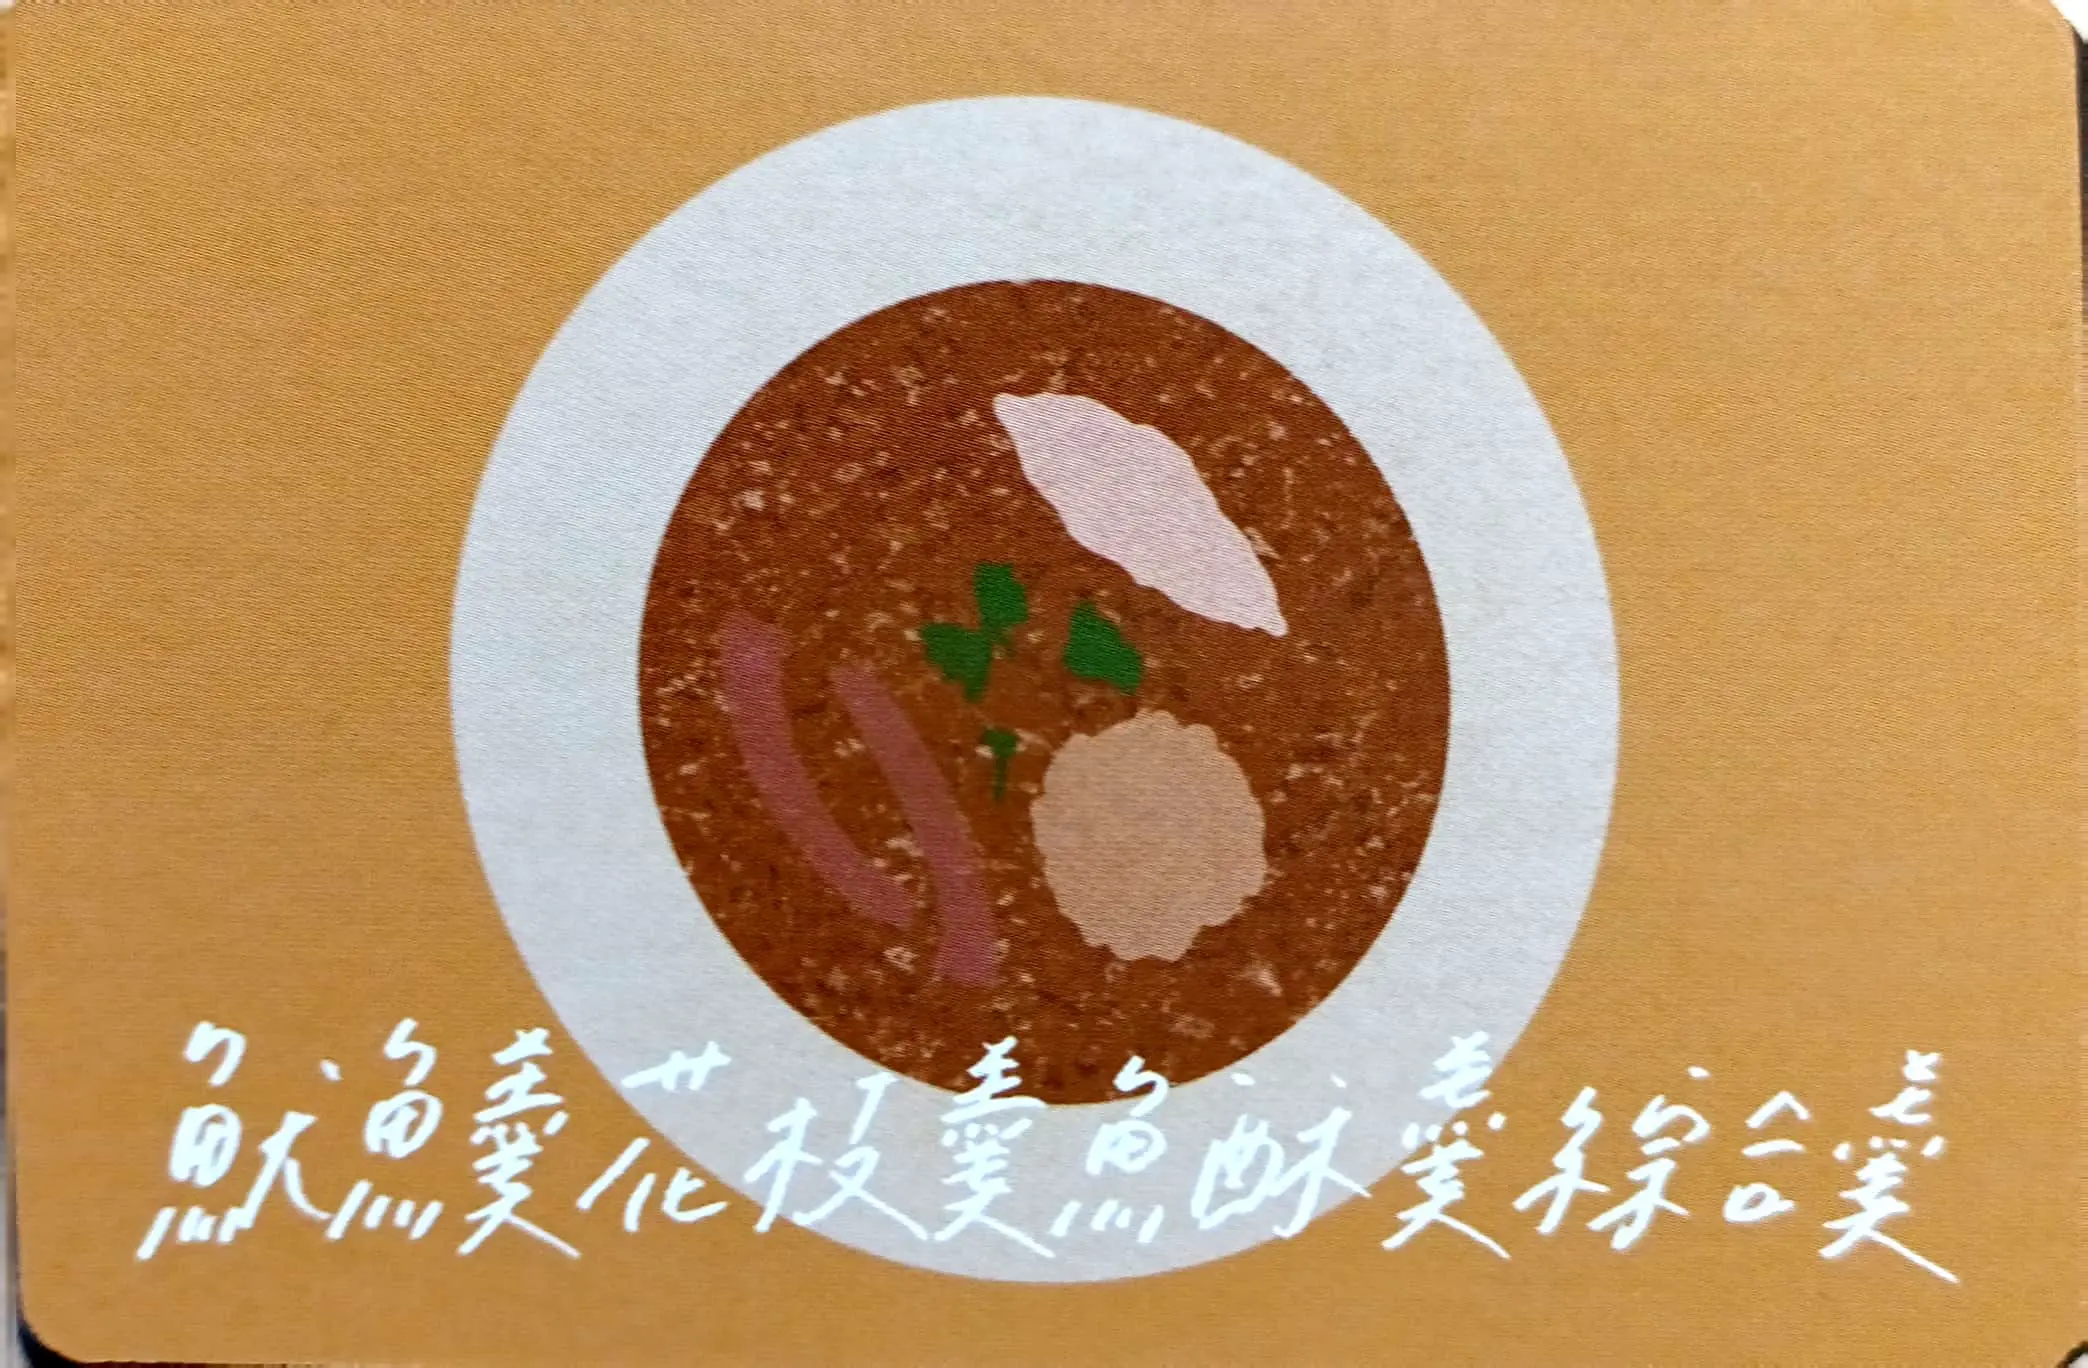 魷魚羹花枝羹魚酥羹綜合羹